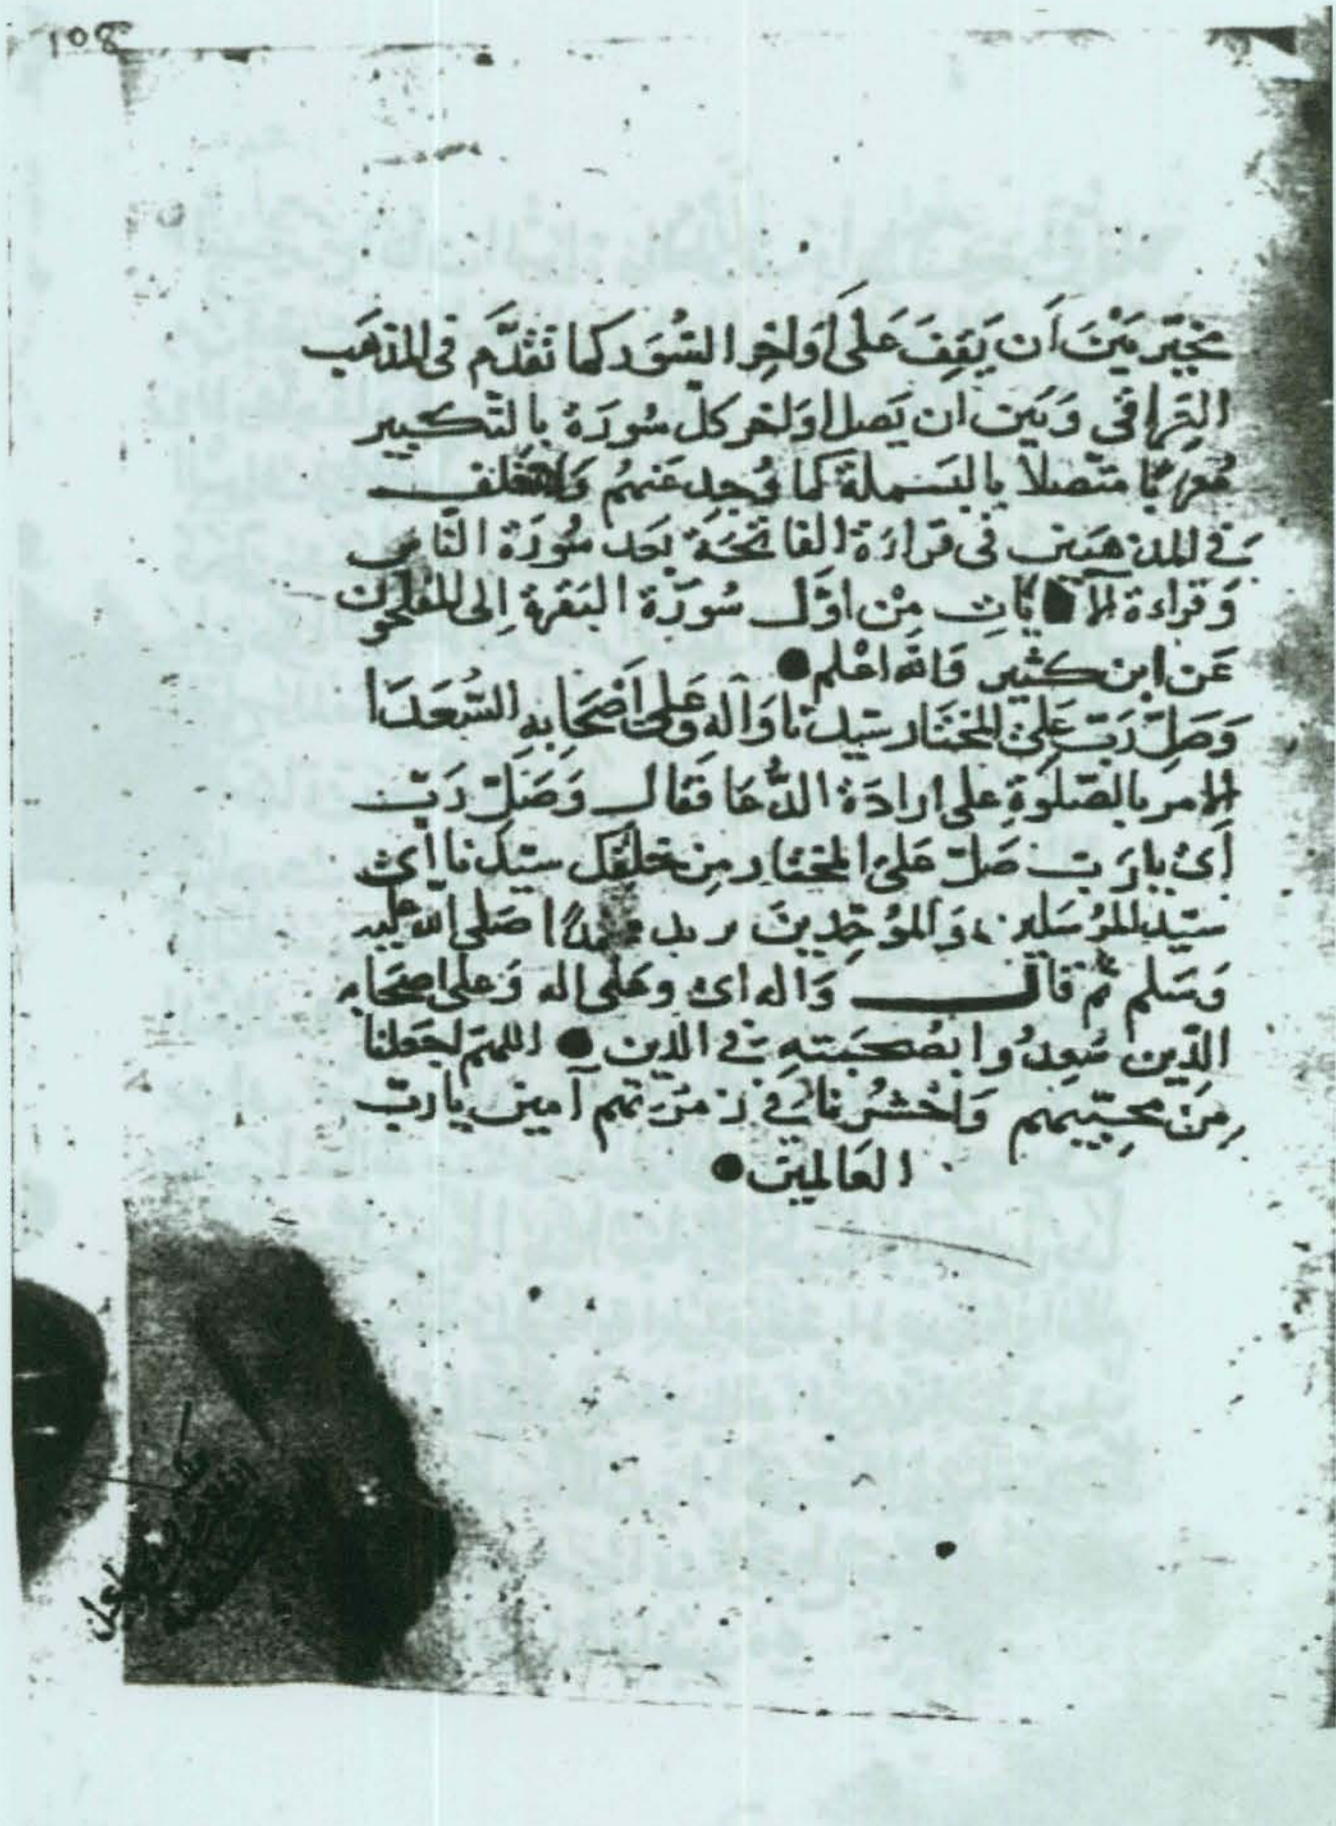 108
مخيّر بَيْنَ اَن يَقِفَ عَلَى اَوَاخِرِ السُّوَر كما تقدَّم فى المذهَب
العِراقي وَبَين ان يَصل اوَاخر كلّ سُورَة بالتّكبير
مُعربًا متّصلا بالبَسملة كما وُجِد عَنهُم
في المذهبَين فى قراءَة الفاتحَة بَعد سُورَة النّاس
وَقراءة ايَاتٍ مِنْ اوّل سُورَة البَقرة اِلى المفلحون
عَن ابن كثير وَالله اعْلم
وَصَلِّ رَبِّ عَلَى المختَار سَيّدنا وَآلهِ وَعَلى اَصْحَابهِ السُّعَدَا
الامر بالصّلوةِ على ارادَة الدُّعَا فقال وَصَلِّ رَبّ
اَىْ يا رَبّ صَلّ عَلىَ المختار مِن خلقك سَيّدنا اَىْ
سَيّد المُرسَلين وَالموُحِّدِينَ يريد محمدًا صَلى الله عليه
وَسَلم ثم قال وَاله اى وعَلى اله وَعَلى اصحَابه
الذِّين سُعِدُوا بصُحبَتهِ في الدين اللهمّ اجعَلنا
مِنْ محِبّيهم وَاحْشُرْنا في زمرَتهم آمين يا ربّ
العَالمين